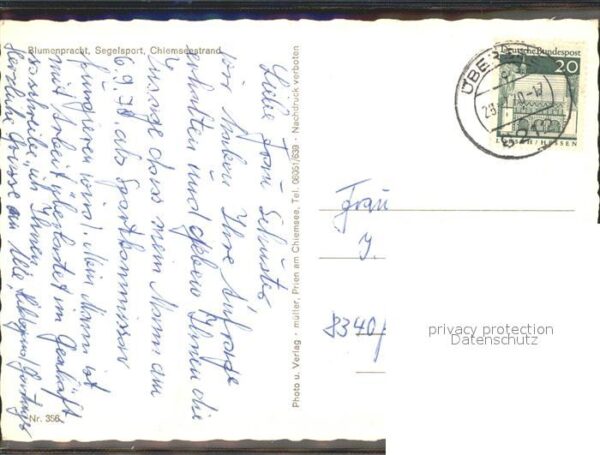 Blumenpracht, Segelsport, Chiemseestrand
Liebe Frau Schuster
wir haben Ihre Anfrage
erhalten und geben Ihnen die
Zusage dass mein Mann am
6.9.70 als Sportkommissar
fungieren wird. Mein Mann ist
mit Arbeit überlastet im Geschäft
so schreibe ich Ihnen.
Herzliche Grüsse an Alle,
Nr. 356
Photo u. Verlag · müller, Prien am Chiemsee, Tel. 0605/639 · Nachdruck verboten
Deutsche Bundespost
20
LORSCH/HESSEN
ÜBERSEE
Frau
J.
8340
privacy protection
Datenschutz